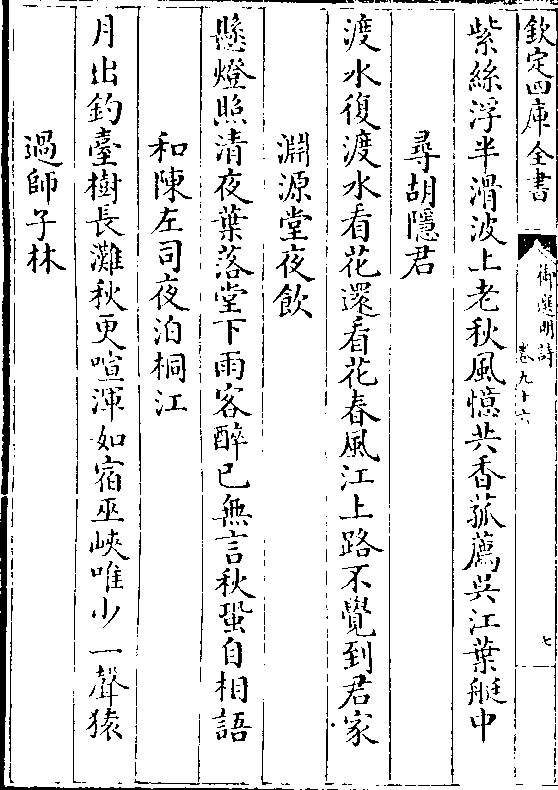 欽定四庫全書
御選明詩
卷九十六
七
紫絲浮半滑波上老秋風憶共香菰薦吳江葉艇中
尋胡隱君
渡水復渡水看花還看花春風江上路不覺到君家
淵源堂夜飲
懸燈照清夜葉落堂下雨客醉已無言秋蛩自相語
和陳左司夜泊桐江
月出釣臺樹長灘秋更喧渾如宿巫峽唯少一聲猿
過師子林